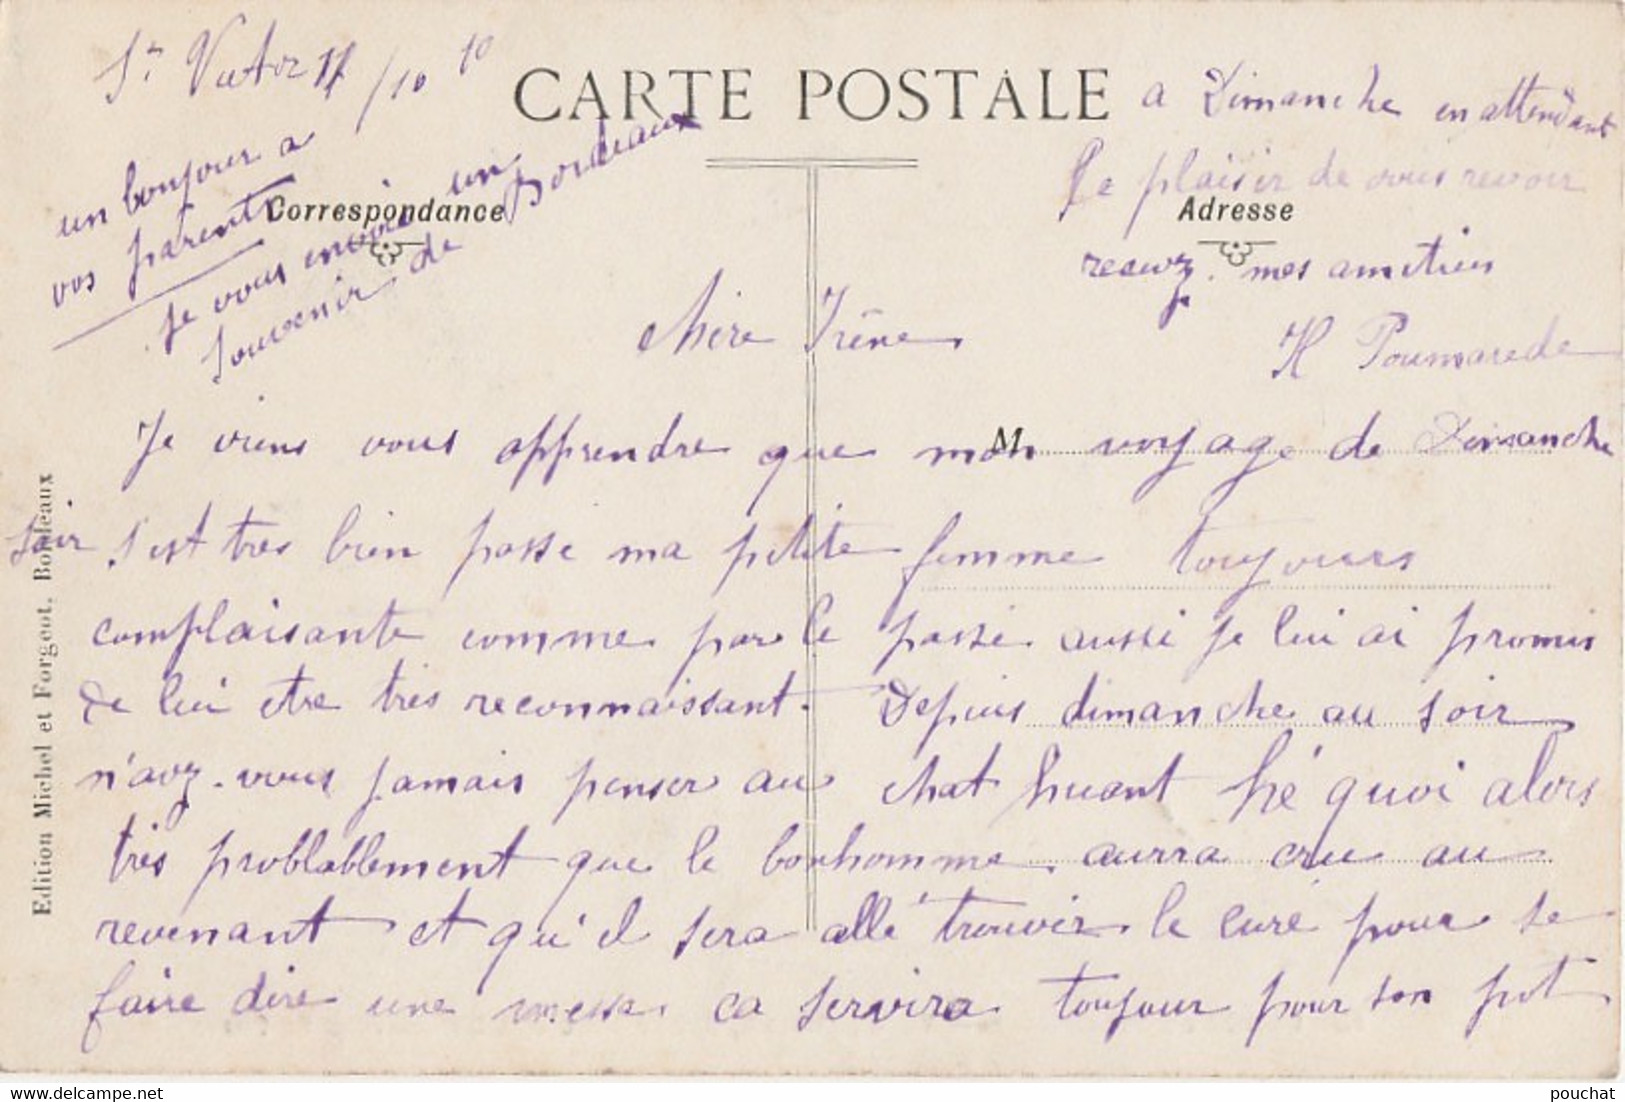 St Victor 11/10 10
CARTE POSTALE
Correspondance
Adresse
M
chère Irène
Je viens vous apprendre que mon voyage de Dimanche
soir s'est tres bien passe ma petite femme toujours
complaisante comme par le passé aussi je lui ai promis
de lui etre très reconnaissant. Depuis dimanche au soir
n'avez-vous jamais penser au chat huant hé quoi alors
très problablement que le bonhomme aurra cru au
revenant et qu'il sera allé trouvir le curé pour se
faire dire une messe ca servira toujour pour son pot
a Dimanche en attendant
le plaisir de vous revoir
recevez mes amitiés
H Poumarede
un bonjour a
vos parents
Je vous envoie un
souvenir de Bordeaux
Edition Michel et Forgeot, Bordeaux
www.delcampe.net
pouchat